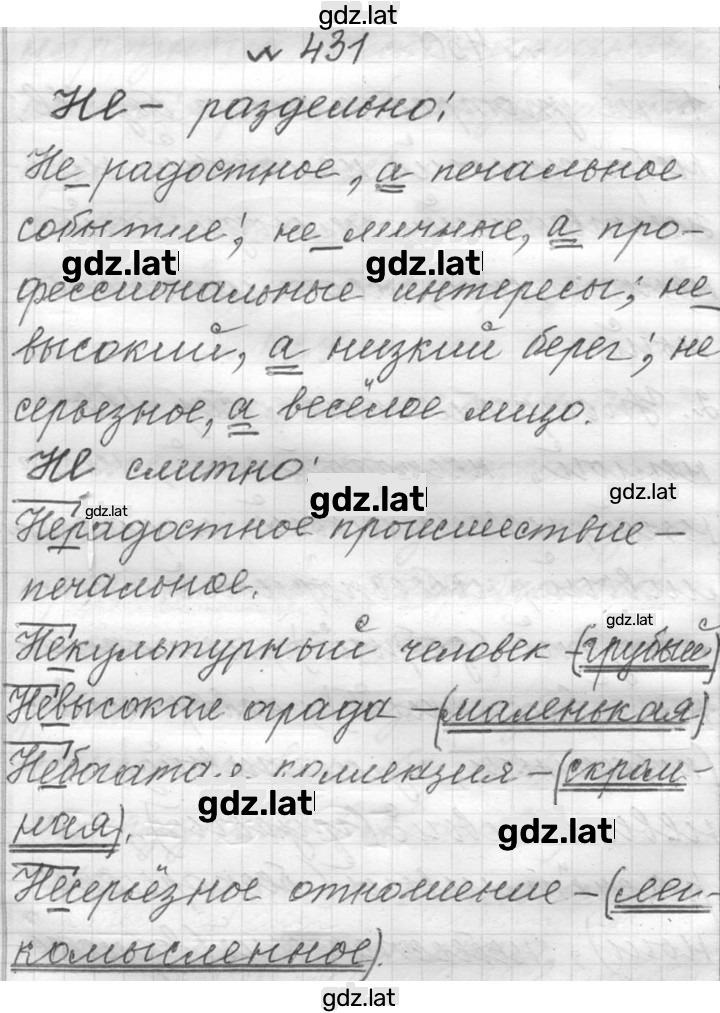 gdz.lat
№ 431
Не – раздельно:
Не радостное, а печальное
событие; не личные, а про-
gdz.lat gdz.lat
фессиональные интересы; не
высокий, а низкий берег; не
серьезное, а весёлое лицо.
Не слитно:
gdz.lat gdz.lat
gdz.lat
Нерадостное происшествие –
печальное.
gdz.lat
Некультурный человек – (грубый)
Невысокая ограда – (маленькая)
Небогатая коллекция – (скром-
gdz.lat
ная).
gdz.lat
Несерьёзное отношение – (лег-
комысленное).
gdz.lat